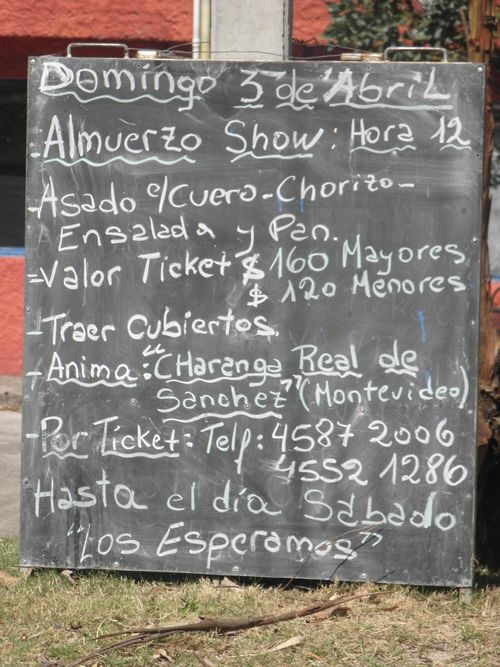 Domingo 3 de Abril
- Almuerzo Show: Hora 12
- Asado c/Cuero - Chorizo -
Ensalada y Pan.
- Valor Ticket $ 160 Mayores
$ 120 Menores
- Traer Cubiertos.
- Anima: "CHaranga Real de
Sanchez" (Montevideo)
- Por Ticket: Telf: 4587 2006
4552 1286
Hasta el día Sábado
"Los Esperamos"